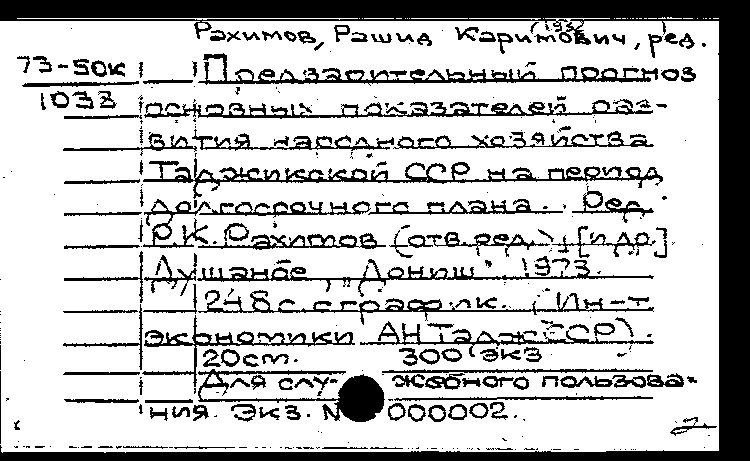 (1932
Рахимов, Рашид Каримович, ред.
73-50к Предварительный прогноз
1033 основных показателей раз-
вития народного хозяйства
Таджикской ССР на период
долгосрочного плана. Ред.
Р.К. Рахимов (отв. ред.), [и др.]
Душанбе, "Дониш" 1973.
248 с. с граф. лк. (Ин-т
экономики АН ТаджССР).
20 см. 300 экз
Для слу- жебного пользова-
ния. Экз. N 000002.